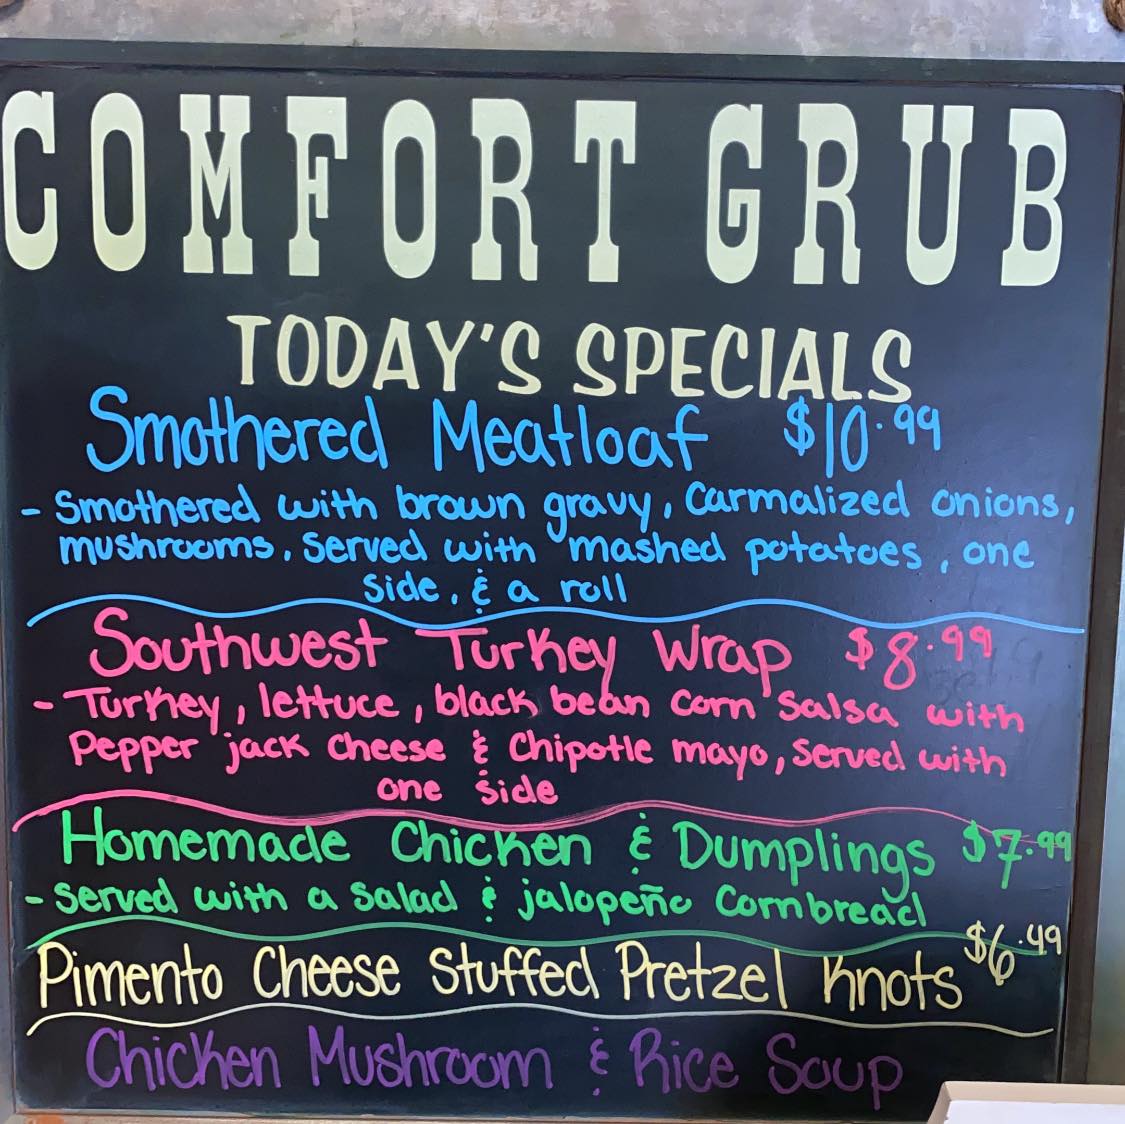 COMFORT GRUB
TODAY'S SPECIALS
Smothered Meatloaf $10.99
- Smothered with brown gravy, Carmalized onions,
mushrooms. Served with mashed potatoes, one
side, & a roll
Southwest Turkey Wrap $8.99
- Turkey, lettuce, black bean corn salsa with
Pepper jack cheese & Chipotle mayo, served with
one side
Homemade Chicken & Dumplings $7.99
- Served with a salad & jalopeño Cornbread
Pimento Cheese Stuffed Pretzel Knots $6.49
Chicken Mushroom & Rice Soup